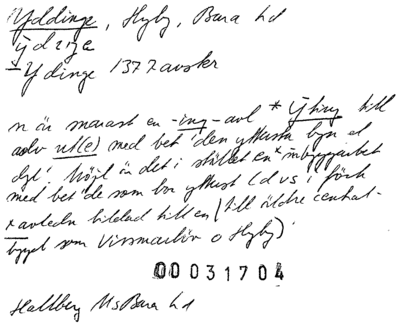 Yddinge, Hyby, Bara hd
ydziŋe
Ydinge 1377 avskr
n är snarast en -ing-avl * Ýting till
adv ut(e) med bet 'den yttersta byn el
dyl'. Möjl är det i stället en * inbyggarbet
med bet 'de som bor ytterst (dvs i förh
till äldre central-
avledn bildad till en
bygget som Vissmarlöv o Hyby)'
00031704
Hallberg Ms Bara hd